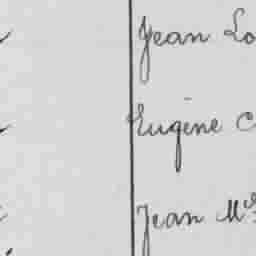 Jean Lo
Eugène C
Jean Mce